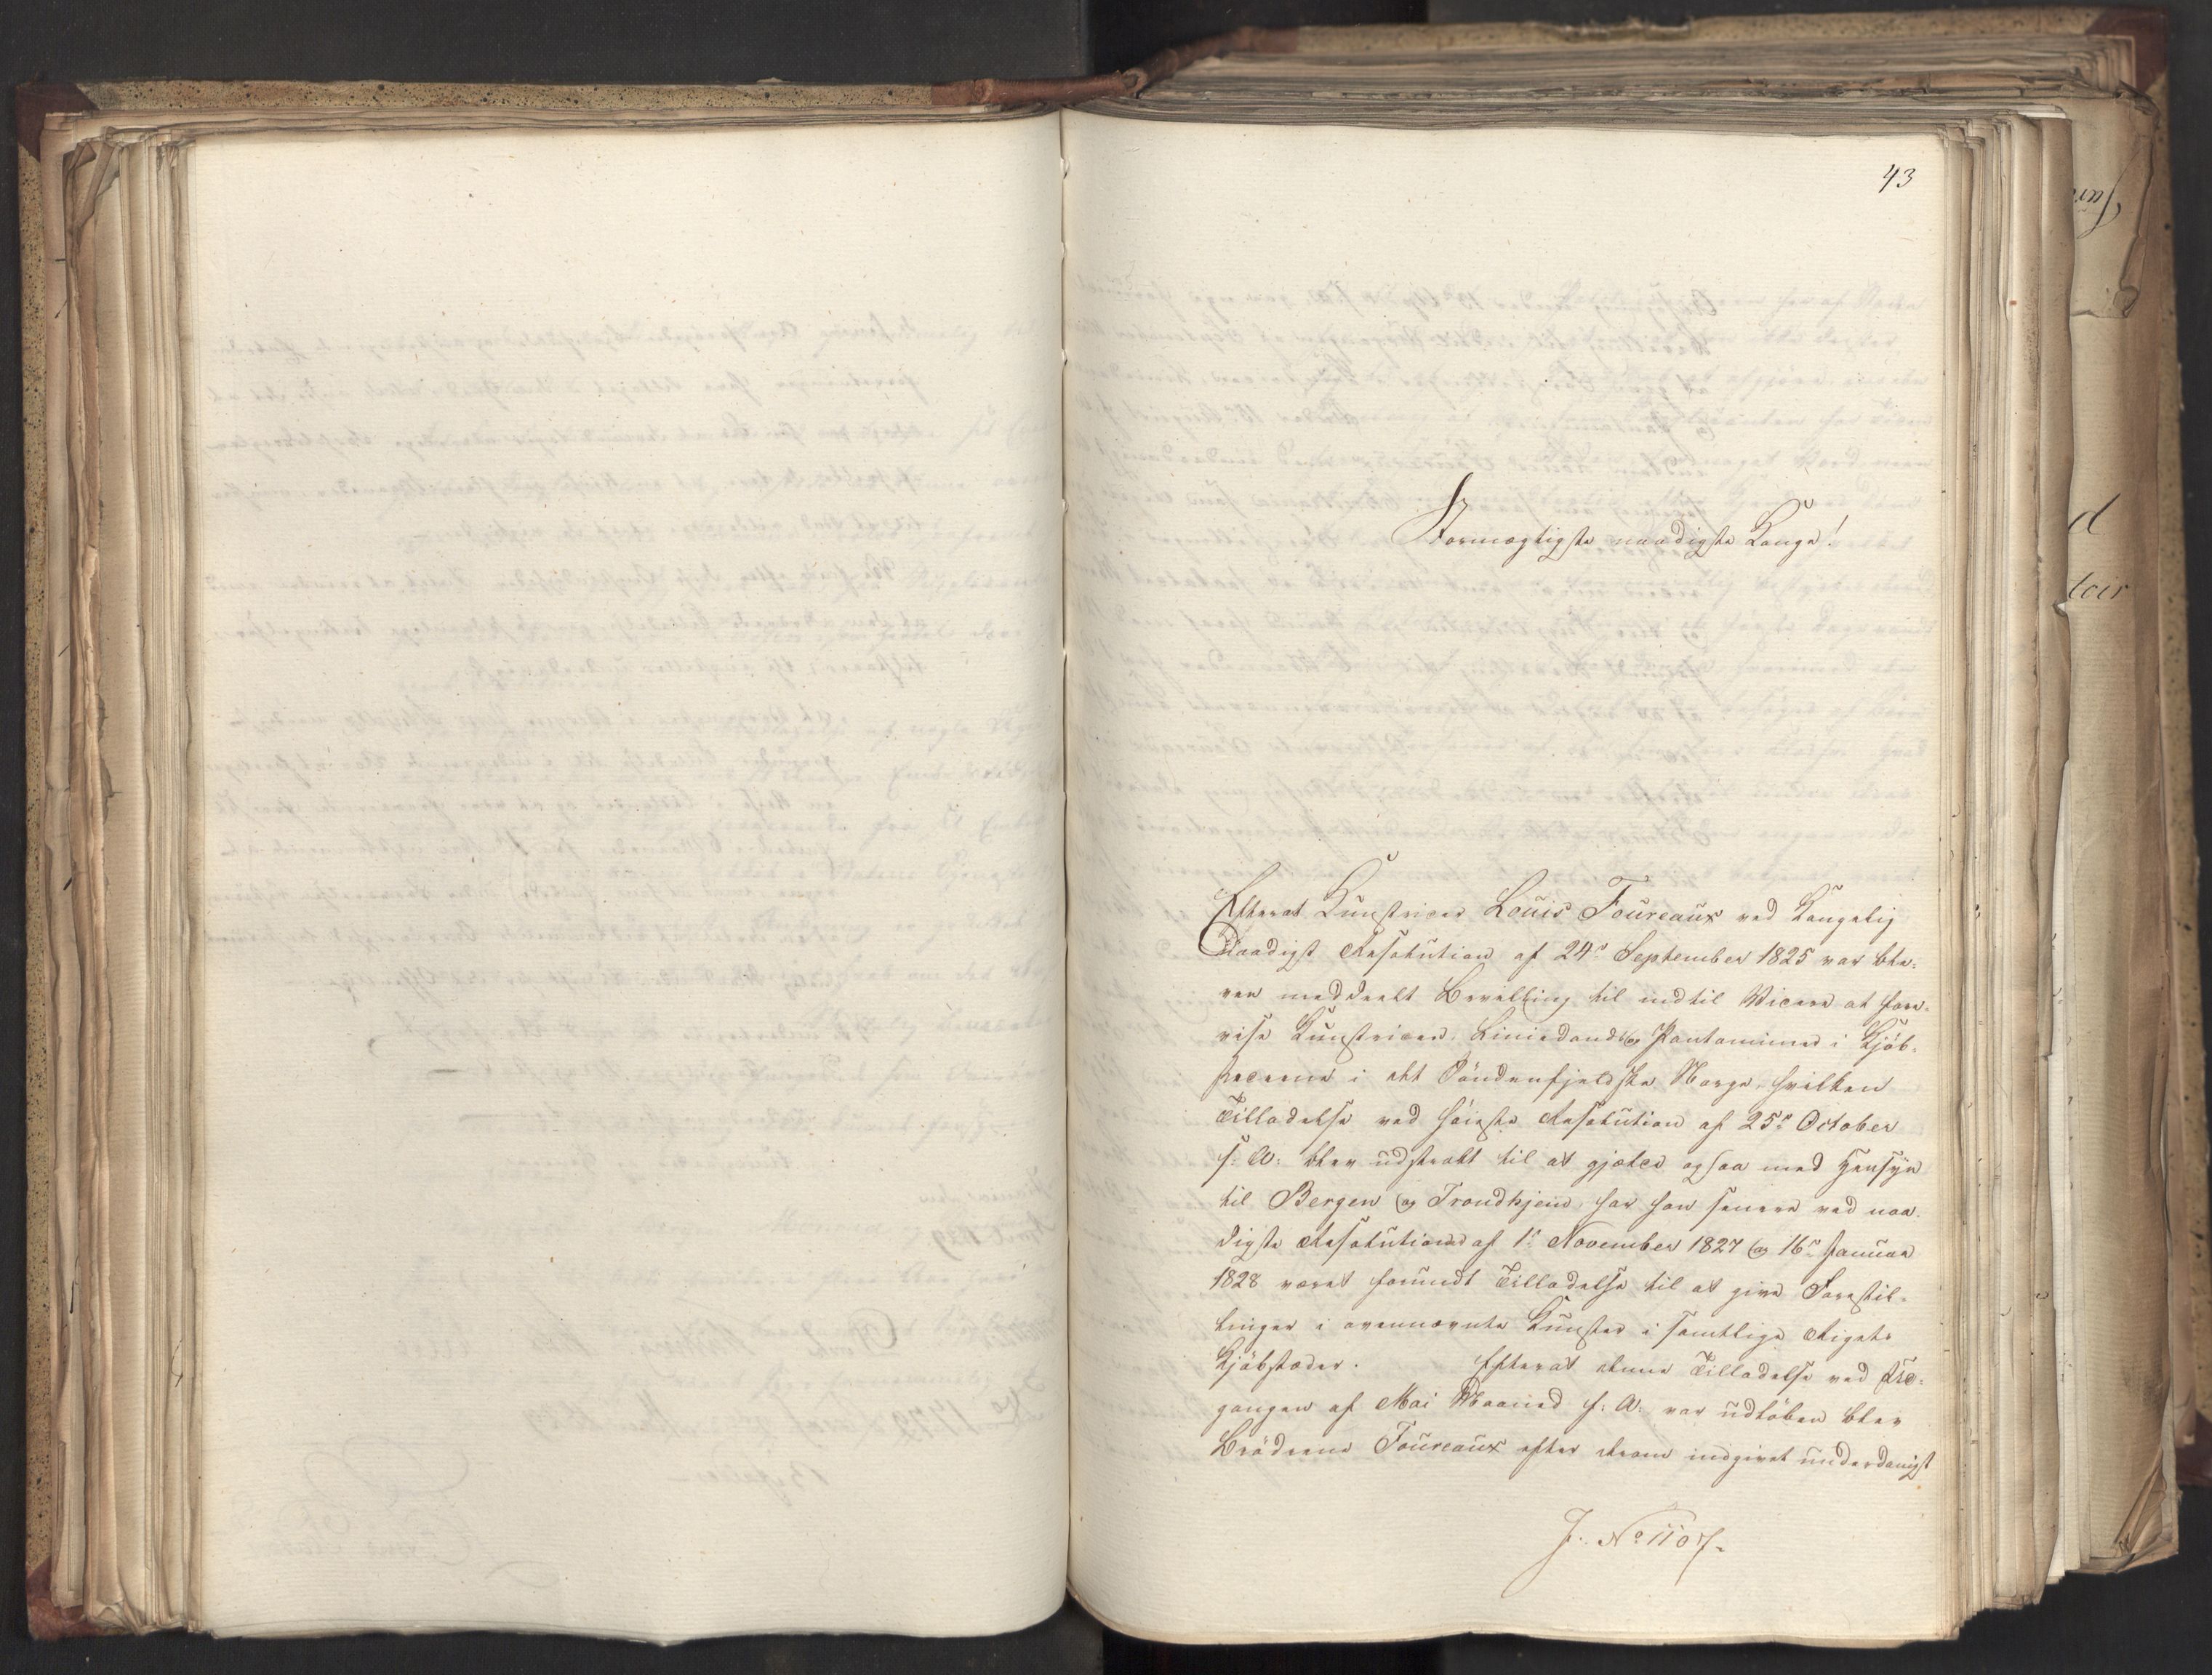 43
Stormægtigste naadigste Konge!
Efterat Kunstrider Louis Foureaux ved Kongelig
naadigst Resolution af 24de September 1825 var ble-
ven meddeelt Bevilling til indtil Videre at fore-
vise Kunstriden, Liniedands og Pantomimer i Kjøb-
stæderne i det Søndenfjeldske Norge, hvilken
Tilladelse ved høieste Resolution af 25de October
s: A: blev udstrakt til at gjælde ogsaa med Hensyn
til Bergen og Trondhjem, har han senere ved naa-
digste Resolutioner af 1ste November 1827 og 16de Januar
1828 været forundt Tilladelse til at give Forestil-
linger i ovennævnte Kunster i samtlige Rigets
Kjøbstæder. Efterat denne Tilladelse ved Ud-
gangen af Mai Maaned f: A: var udløben blev
Brødrene Foureaux efter derom indgivet underdanigst
J. No 1107.
d
toir